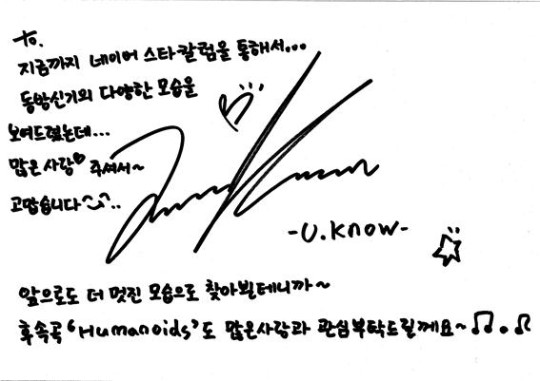 To.
지금까지 네이버 스타칼럼을 통해서...
동방신기의 다양한 모습을
보여드렸는데...
많은 사랑♥ 주셔서~
고맙습니다^^..
-U.Know-
앞으로도 더 멋진 모습으로 찾아뵐테니까~
후속곡 'Humanoids'도 많은사랑과 관심부탁드릴께요~♫.♫